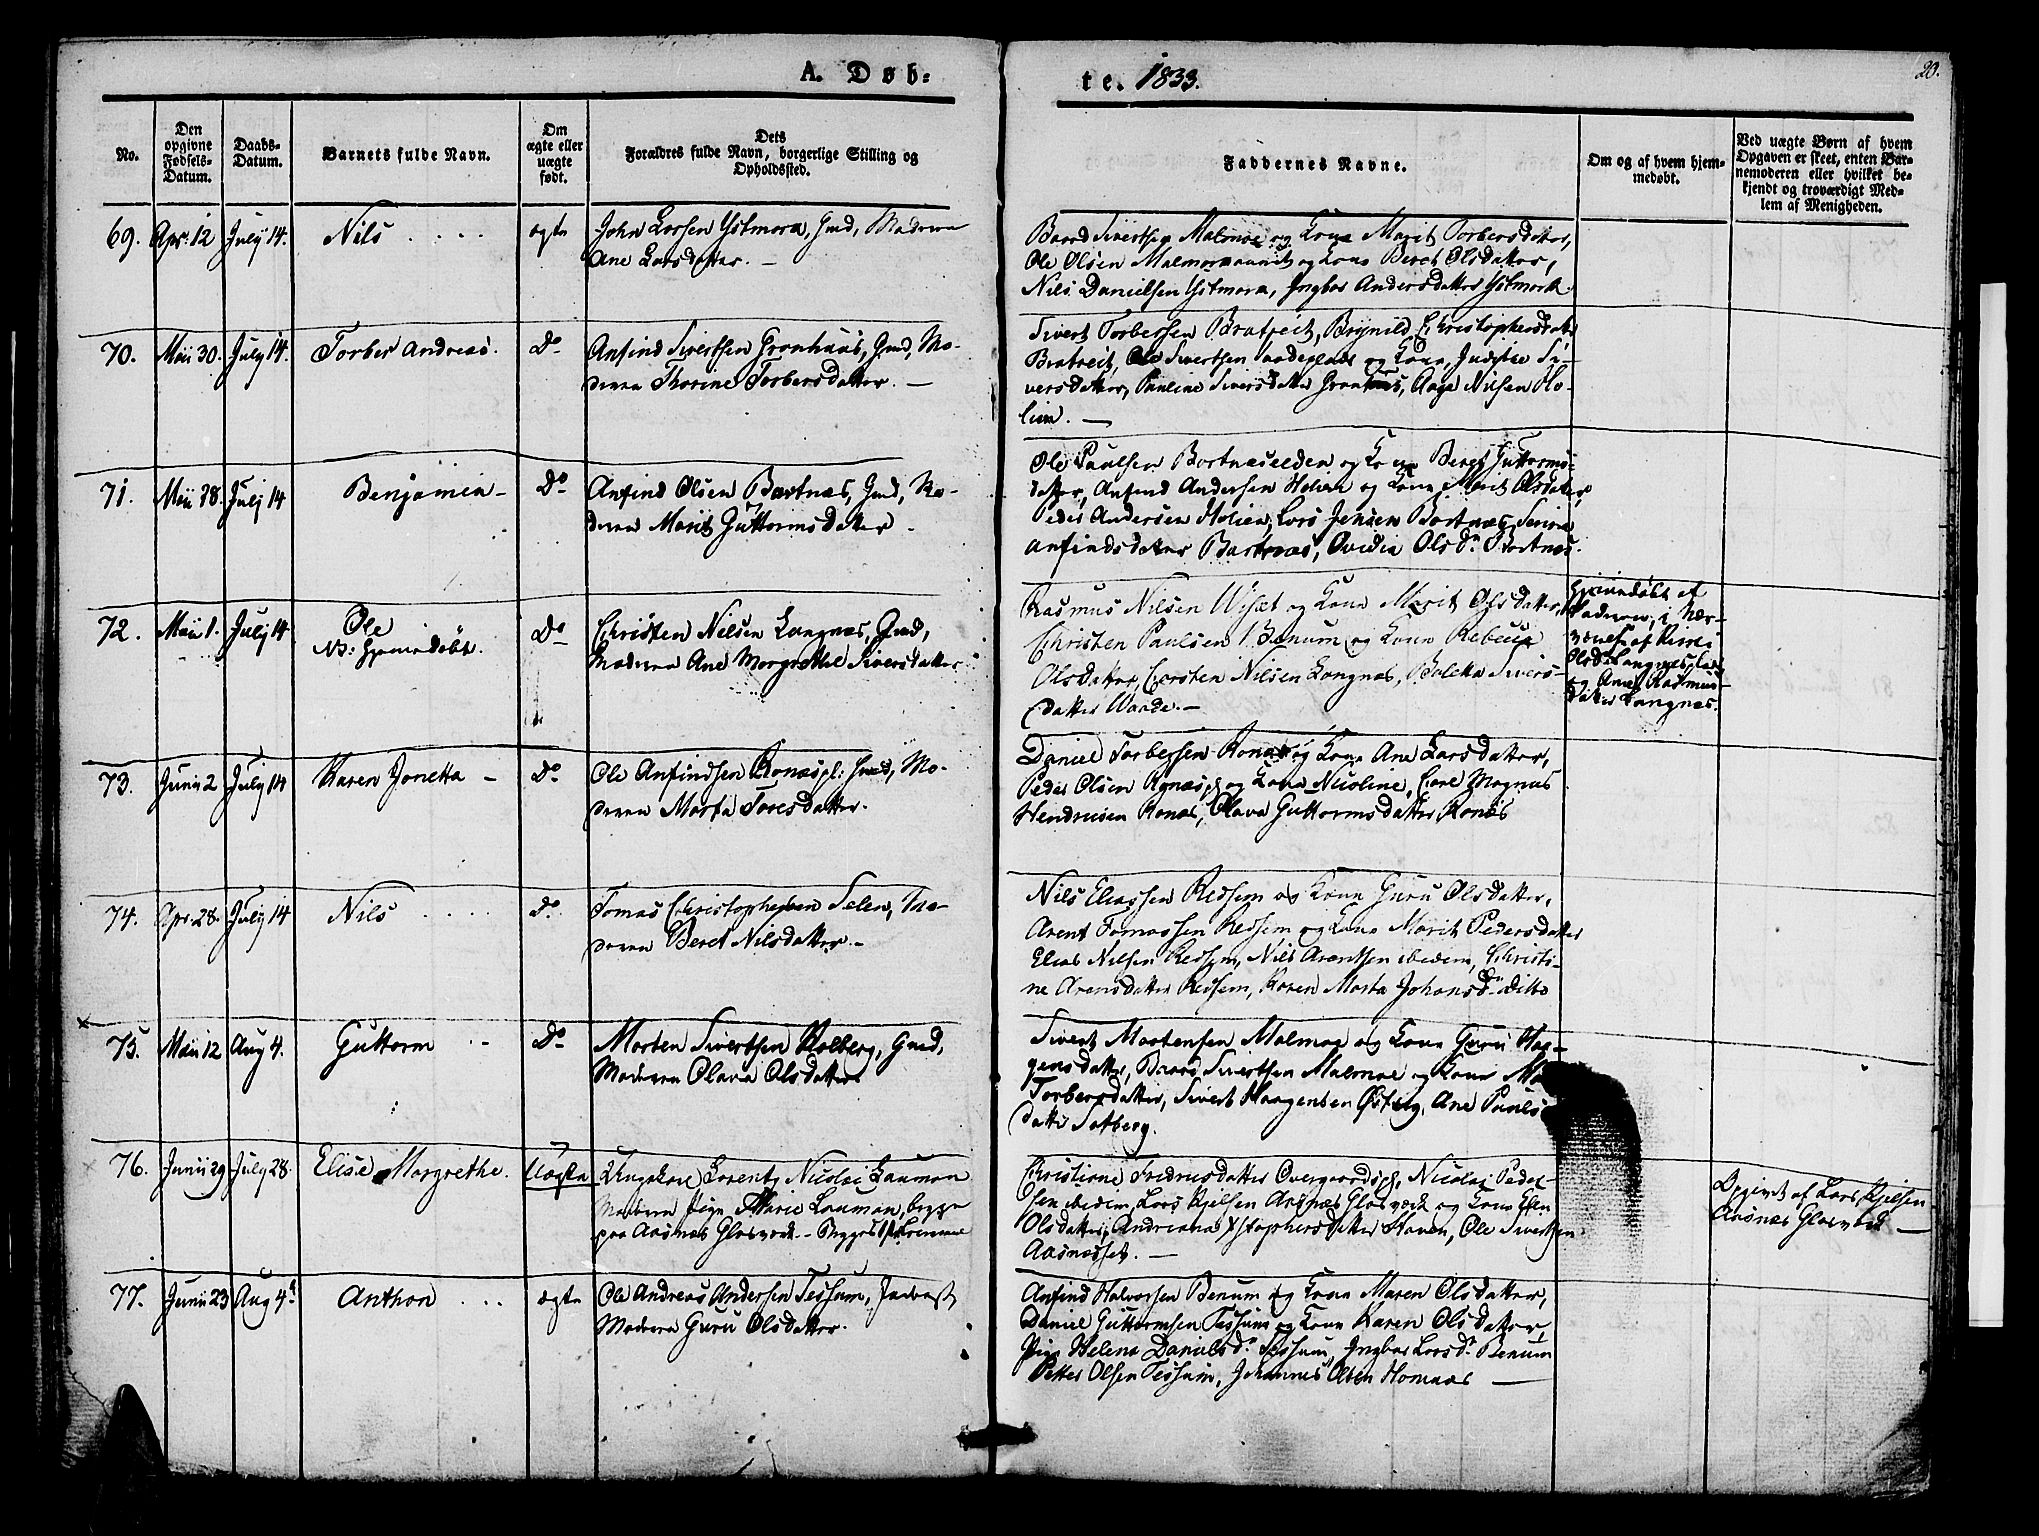 A. Døb=
te. 1833.
20.
No.
Den opgivne Fødsels-Datum.
Daabs-Datum.
Barnets fulde Navn.
Om ægte eller uægte født.
Dets
Forældres fulde Navn, borgerlige Stilling og
Opholdssted.
Faddernes Navne.
Om og af hvem hjem-
medøbt.
Ved uægte Børn af hvem
Opgaven er skeet, enten Bar-
nemoderen eller hvilket be-
kjendt og troværdigt Med-
lem af Menigheden.
69. Apr. 12 July 14. Nils ægte
John Larsen Ystmora, Gmd, Moderen
Ane Larsdatter. -
Baard Sivertsen Malmoe og Kone Marit Torbersdatter,
Ole Olsen og Kone Beret Olsdatter,
Nils Danielsen Ystmora, Ingbor Andersdatter Ystmora.
70. Maii 30. July 14. Torber Andreas. Do
Anfind Sivertsen Grønhaas, Gmd, Mo-
deren Thorine Torbersdatter. -
Sivert Torbersen Bratreit, Brynild Christophersdatter
Bratreit, Ole Sivertsen og Kone, Si-
versdatter, Pauline Siversdatter, Aage Nilsen Ho-
lien. -
71. Maii 28. July 14 Benjamin - Do
Anfind Olsen Bartnæs, Gmd, Mo-
deren Marit Guttormsdatter -
Ole Paulsen og Kone Beret Guttorms-
datter, Anfind Andersen Holien og Kone Marit Olsdatter
Peder Andersen Holien, Lars Jensen Bartnæs,
Anfindsdatter Bartnæs, Ovidia Olsdr Bartnæs.
72. Maii 1. July 14 Ole
NB: Hjemmedøbt. Do
Christen Nilsen Langnæs, Gmd,
Moderen Ane Margrethe Siversdatter
Rasmus Nilsen og Kone Marit Olsdatter,
Christen Paulsen Benum og Kone Rebecca
Olsdatter, Carsten Nilsen Langnæs, Boletta Sivers-
datter Waade. -
Hjemmedøbt af
i Nær-
af
Olsdr Langnæs
og Ane Rasmus-
datter Langnæs.
73. Junii 2 July 14 Karen Jonetta - Do
Ole Anfindsen Konæspl: Gmd, Mo-
deren Marta Toresdatter.
Daniel Torbersen Konæs og Kone Ane Larsdatter,
Peder Olsen og Kone Nicoline, Carl Magnus
Hendricsen Konæs, Olava Guttormsdatter Konæs
74. Apr. 28. July 14 Nils Do
Tomas Christophersen Selen, Mo-
deren Beret Nilsdatter. -
Nils Eliassen Redsem og Kone Guru Olsdatter,
Arent Tomassen Redsem og Kone Marit Pedersdatter
Elias Nilsen Redsem, Nils Arentsen ibidem, Christi-
ne Arensdatter Redsem, Karen Marta Johansdr ditto
75. Maii 12 Aug 4. Guttorm - Do
Morten Sivertsen Holberg, Gmd,
Moderen Olava Olsdatter
Sivert Mortensen Malmoe og Kone Guru Haa-
gensdatter, Baard Sivertsen Malmoe og Kone Ma
Torbersdatter, Sivert Haagensen, Ane Pauls
datter Solberg.
76. Junii 29 July 28. Elise Margrethe. Uægte
Ungekarl Lorentz Nicolai Lauman
Moderen Pige Marie Lauman, begge
paa Aasnæs Glasværk. -
Christiane Fredricsdatter, Nicolai Peder-
sen ibidem, Lars Kjelsen Aasnæs Glasværk og Kone Elen
Olsdatter, Andreana Xstophersdatter Staven, Ole Sivertsen
Aasnæsset. -
Opgivet af Lars Kjelsen
Aasnæs Glasværk -
77. Junii 23 Aug 4. Anthon ægte
Ole Andreas Andersen Tessum, Inderst
Moderen Guru Olsdatter.
Anfind Halvorsen Benum og Kone Maren Olsdatter,
Daniel Guttormsen Tessum og Kone Karen Olsdatter
Pige Helena Danielsdr Tessum, Ingbor Larsdr Benum
Petter Olsen Tessum, Johannes Olsen Homnæs -